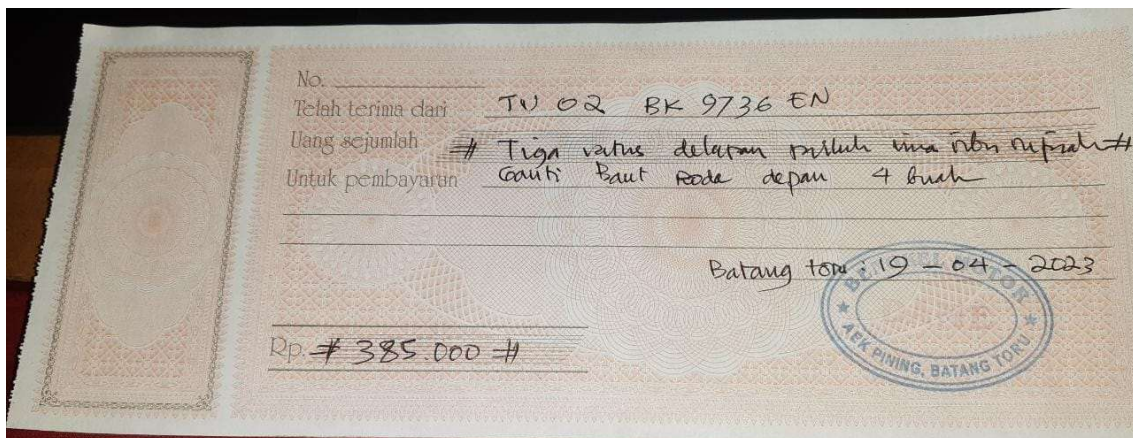 No.
Telah terima dari TW 02 BK 9736 EN
Uang sejumlah # Tiga ratus delapan puluh lima ribu rupiah #
Untuk pembayaran Ganti Baut Roda depan 4 buah
Batang toru : 19 - 04 - 2023
BENGKEL
AEK PINING, BATANG TORU
Rp. # 385.000 #